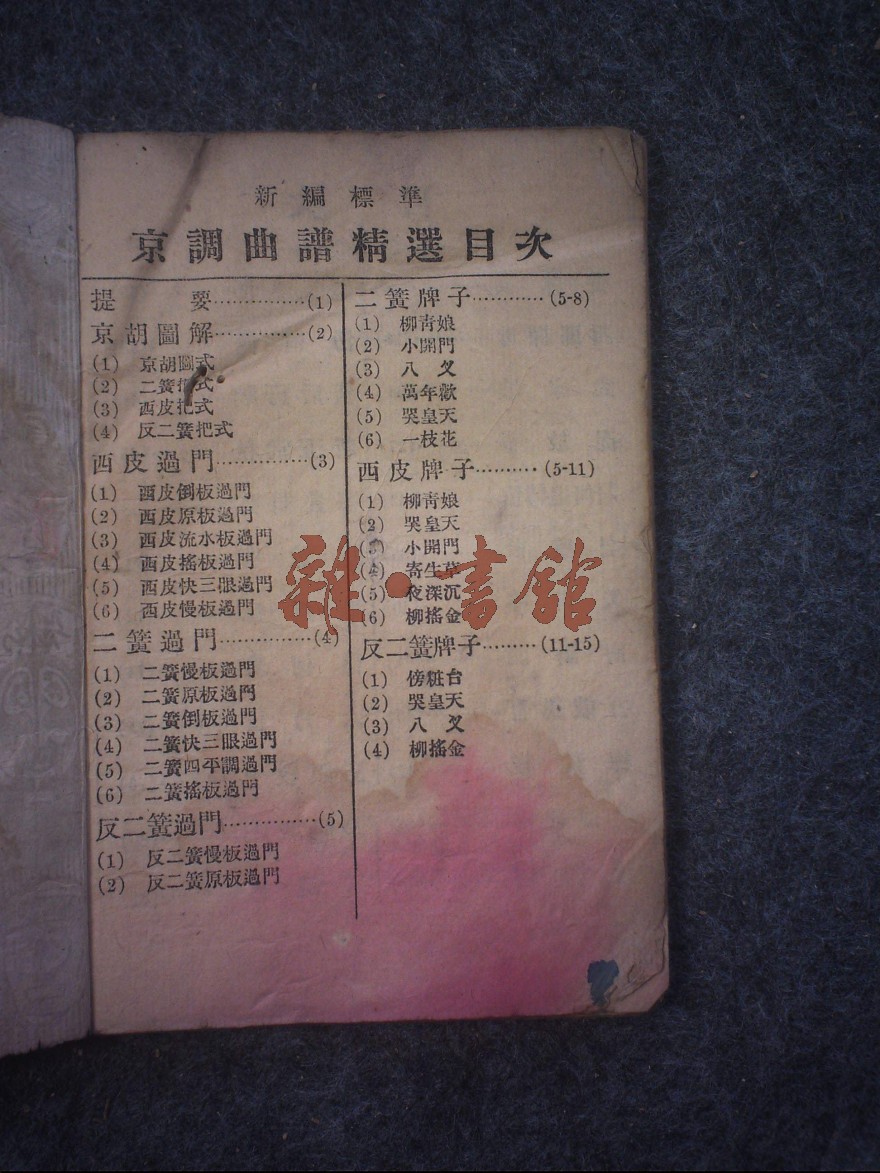 新編標準
京調曲譜精選目次
提要……………(1)
京胡圖解……………(2)
(1) 京胡圖式
(2) 二簧把式
(3) 西皮把式
(4) 反二簧把式
西皮過門……………(3)
(1) 西皮倒板過門
(2) 西皮原板過門
(3) 西皮流水板過門
(4) 西皮搖板過門
(5) 西皮快三眼過門
(6) 西皮慢板過門
二簧過門……………(4)
(1) 二簧慢板過門
(2) 二簧原板過門
(3) 二簧倒板過門
(4) 二簧快三眼過門
(5) 二簧四平調過門
(6) 二簧搖板過門
反二簧過門……………(5)
(1) 反二簧慢板過門
(2) 反二簧原板過門
二簧牌子…………(5-8)
(1) 柳靑娘
(2) 小開門
(3) 八叉
(4) 萬年歡
(5) 哭皇天
(6) 一枝花
西皮牌子………(5-11)
(1) 柳靑娘
(2) 哭皇天
(3) 小開門
(4) 寄生草
(5) 夜深沉
(6) 柳搖金
反二簧牌子………(11-15)
(1) 傍粧台
(2) 哭皇天
(3) 八叉
(4) 柳搖金
雜·書館